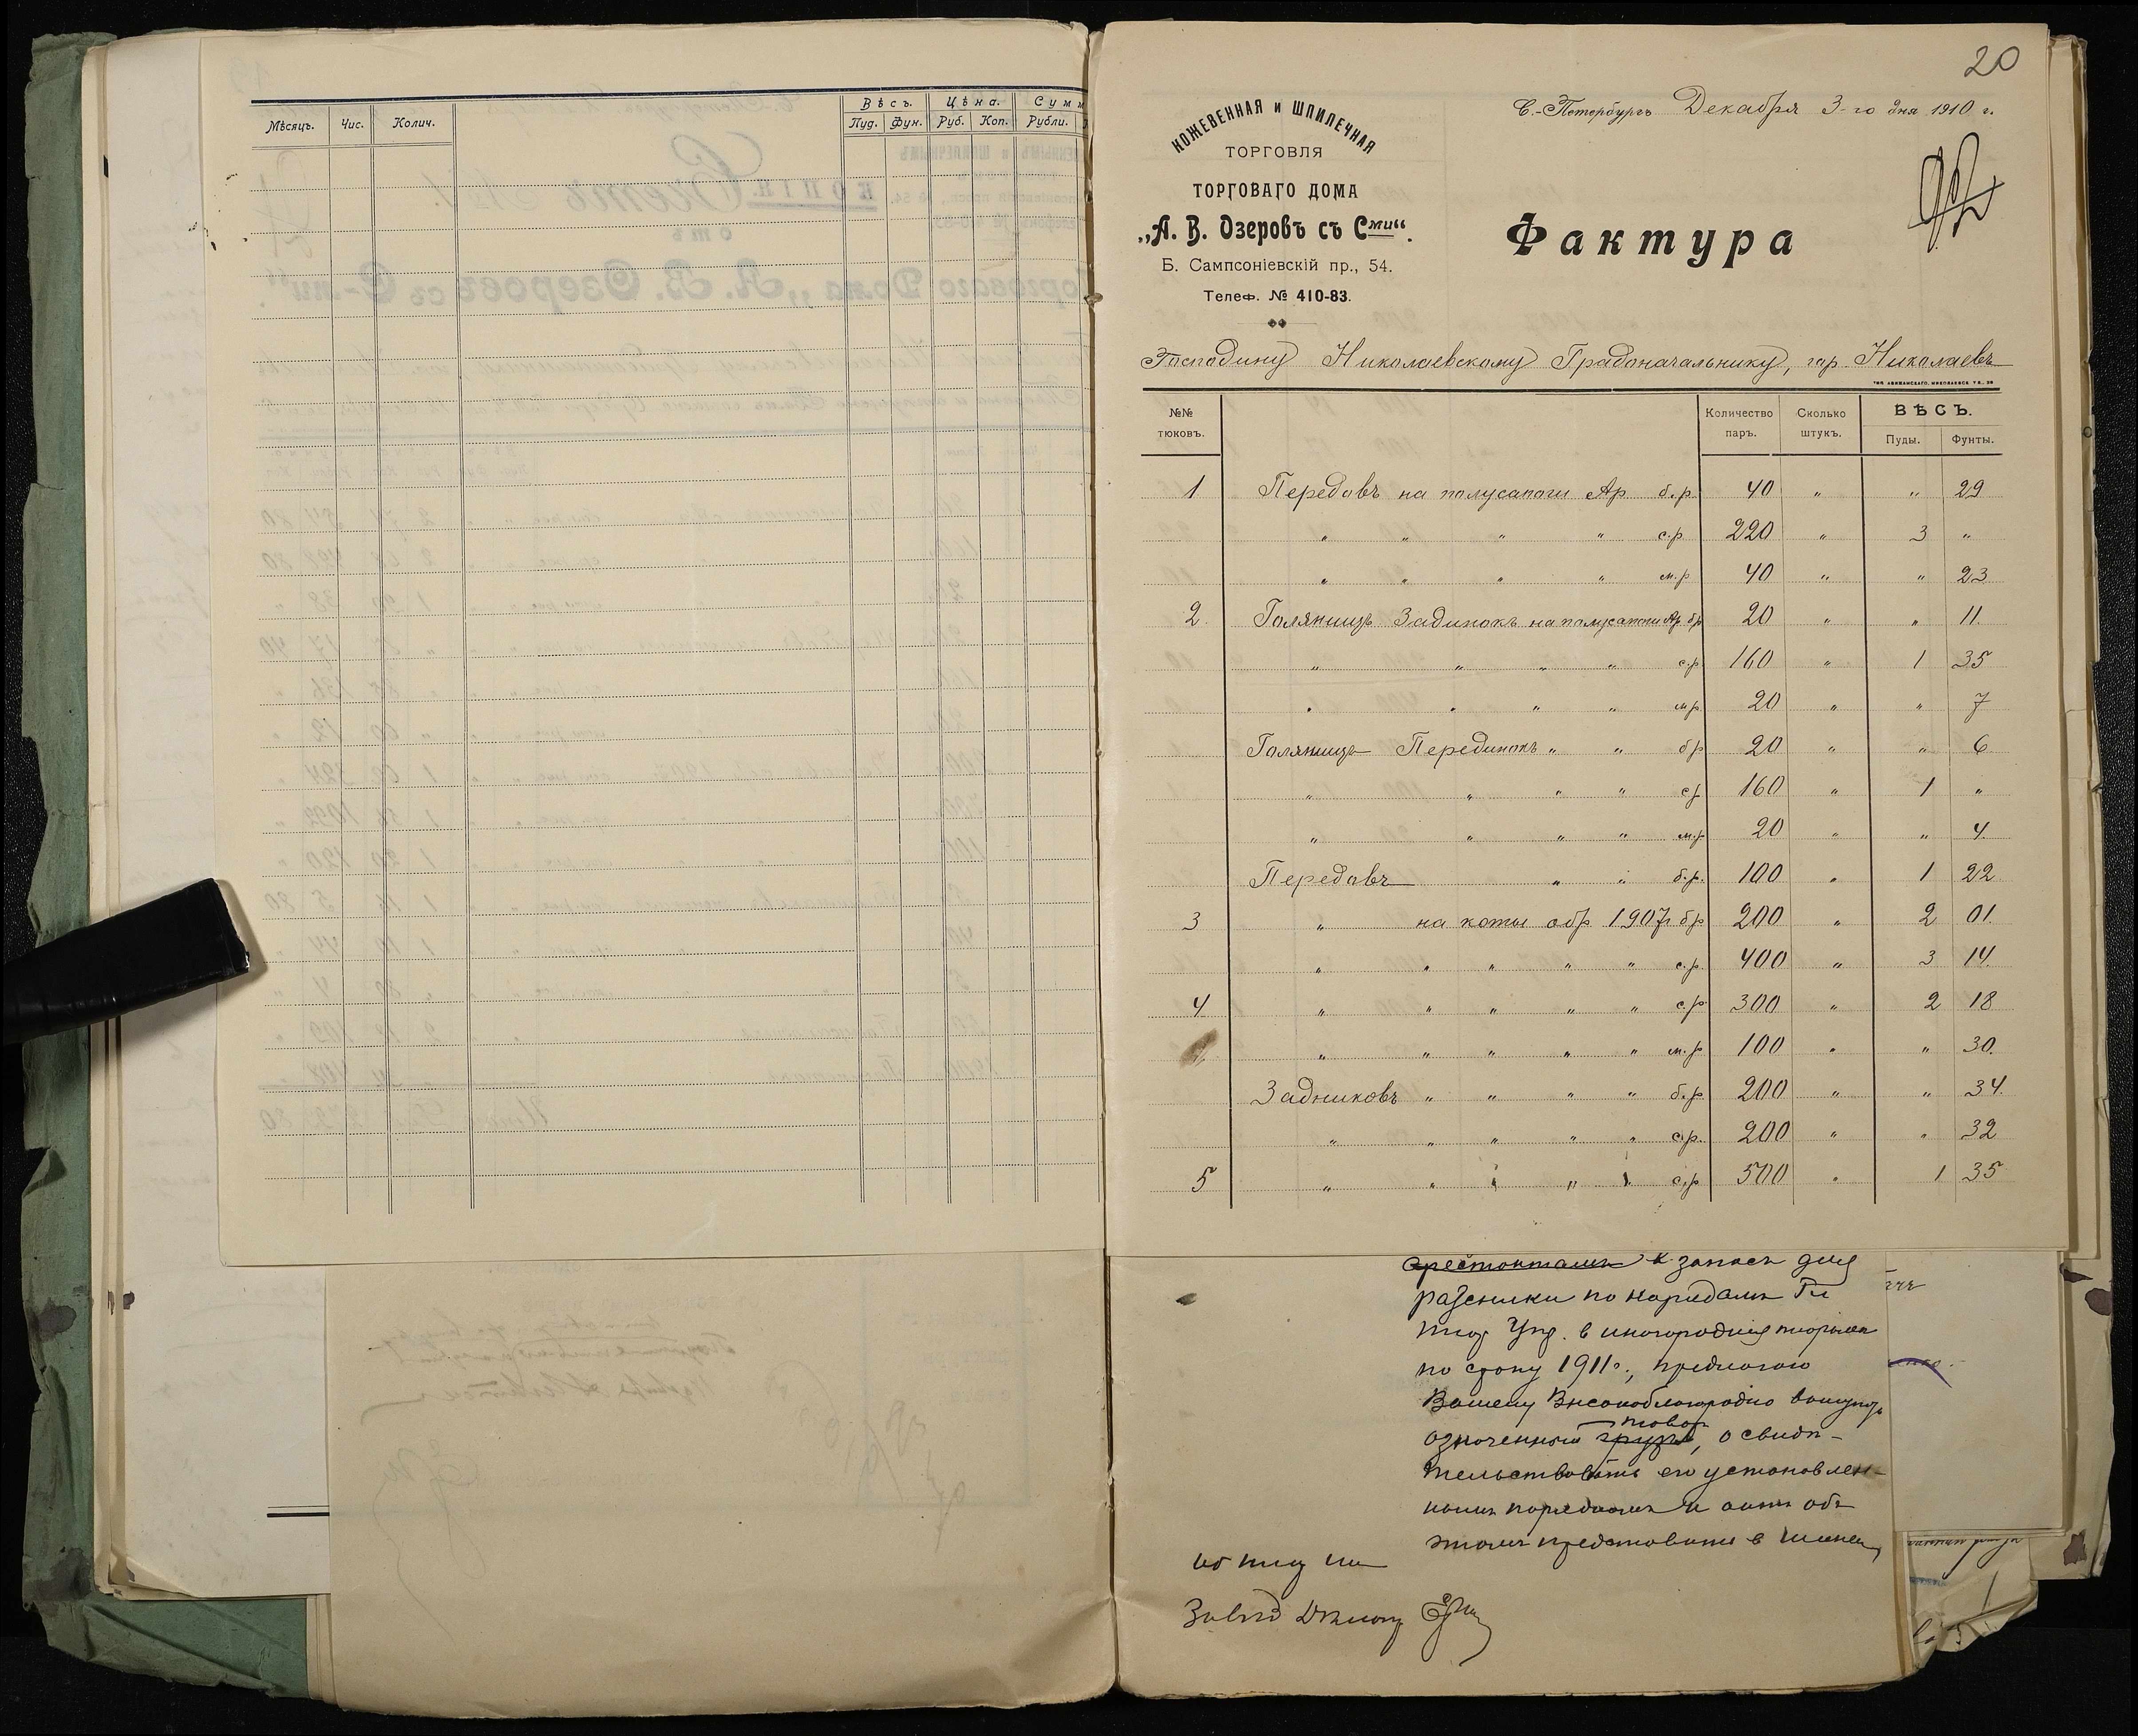 Мѣсяцъ. Чис. Колич. Вѣсъ. Цѣна. Сумм
Пуд. Фун. Руб. Коп. Рубли.
20
С.-Петербургъ Декабря 3-го дня 1910 г.
КОЖЕВЕННАЯ и ШПИЛЕЧНАЯ
ТОРГОВЛЯ
ТОРГОВАГО ДОМА
„А. В. Озеровъ съ Сми“.
Б. Сампсоніевскій пр., 54.
Телеф. № 410-83.
Фактура
Господину Николаевскому Градоначальнику, гор. Николаевъ
№№ тюковъ. Количество паръ. Сколько штукъ. ВѢСЪ.
Пуды. Фунты.
1 Передовъ на полусапоги Ар б.р. 40 " " 29
" " " " с.р. 220 " 3 "
" " " " м.р 40 " " 23
2. Голянищъ Задинокъ на полусапоги Ар бр 20 " " 11.
" " " " с.р 160 " 1 35
" " " " м.р. 20 " " 7
Голянищъ Перединокъ " " бр 20 " " 6
" " " " ср 160 " 1 "
" " " " м.р 20 " " 4.
Передовъ " " б.р. 100 " 1 22
3 " на коты обр 1907 г бр 200 " 2 01.
" " " " " с.р. 400 " 3 14.
4 " " " " " ср 300 " 2 18
" " " " " м.р 100 " " 30.
Задниковъ " " " " б.р. 200 " " 34.
" " " " " с.р. 200 " " 32
5 " " " " " с.р 500 " 1 35
арестантамъ к запасъ для
разсылки по нарядамъ Гл
Тюр Упр. в иногородния тюрьмы
по сроку 1911 г., предлагаю
Вашему Высокоблагородію
товаръ
означенный грузъ, освидѣ-
тельствовать его установлен-
нымъ порядкомъ и актъ объ
этомъ представить в